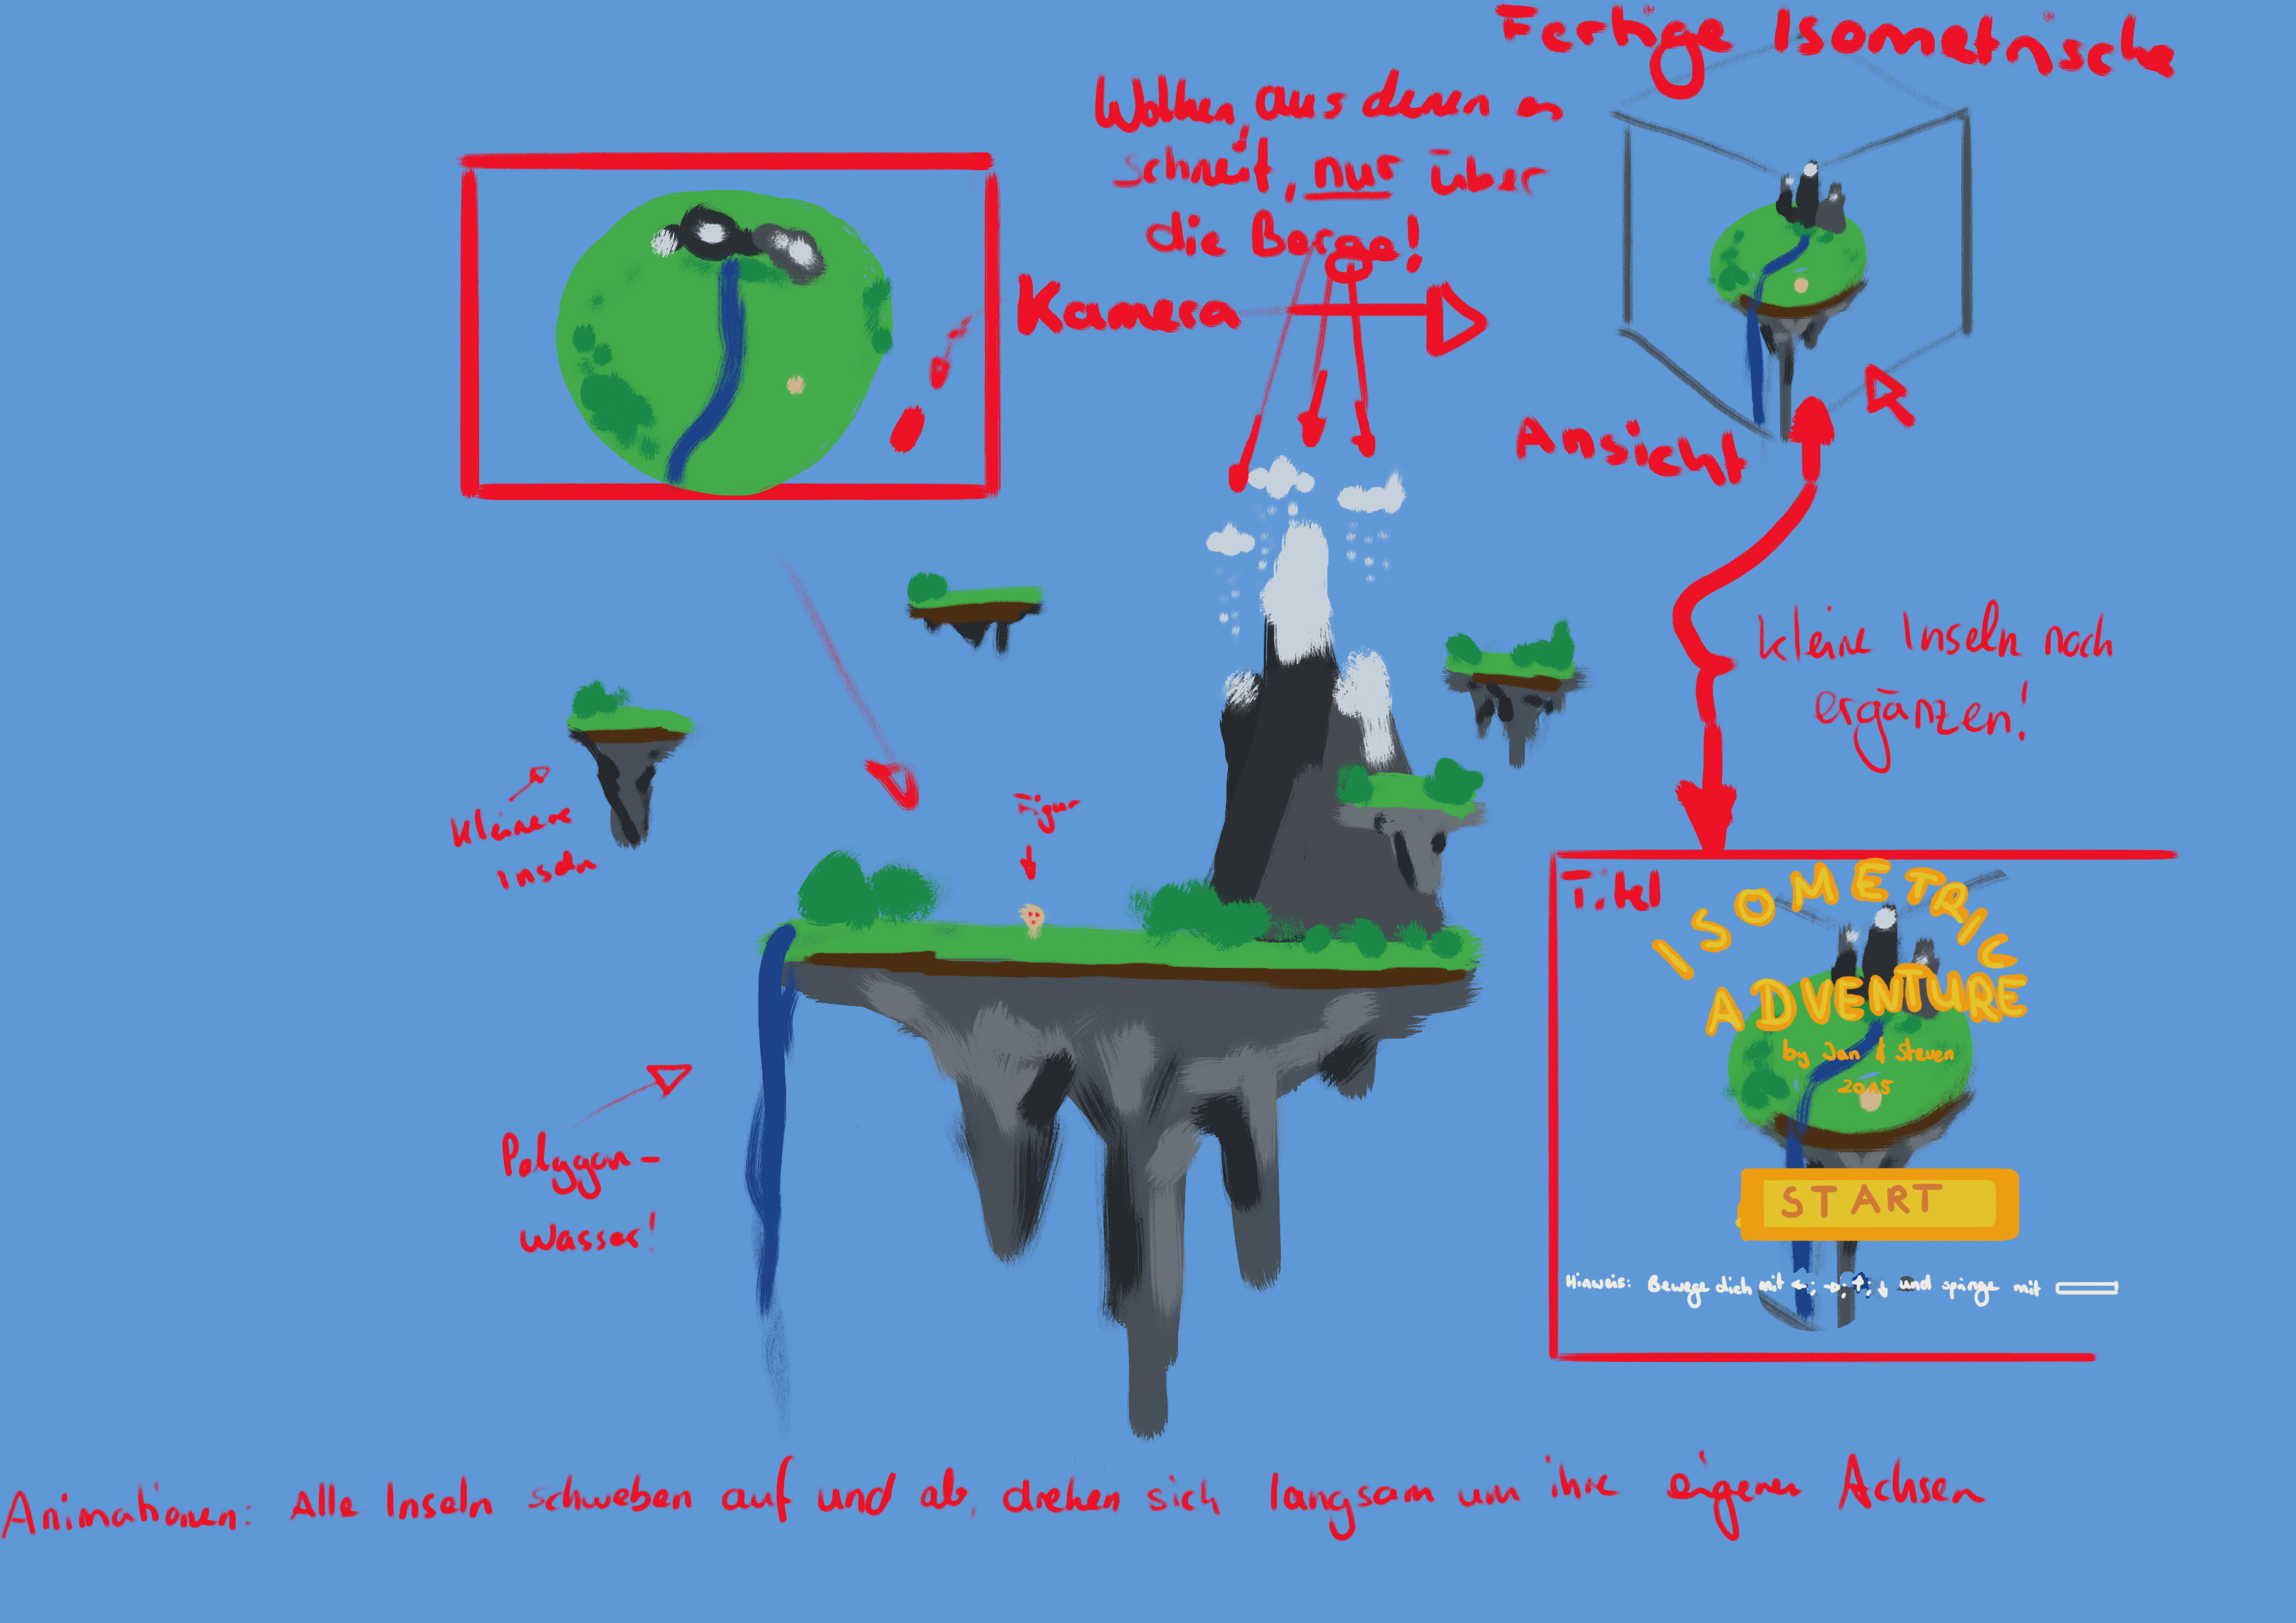 Fertige Isometrische
Ansicht
Wolken, aus denen es
schneit, nur über
die Berge!
Kamera
kleine Inseln noch
ergänzen!
Kleinere
Inseln
Figur
Titel
ISOMETRIC
ADVENTURE
by Jan & Steven
2015
START
Hinweis: Bewege dich mit ←; →; ↑; ↓ und springe mit
Polygon-
wasser!
Animationen: Alle Inseln schweben auf und ab, drehen sich langsam um ihre eigenen Achsen